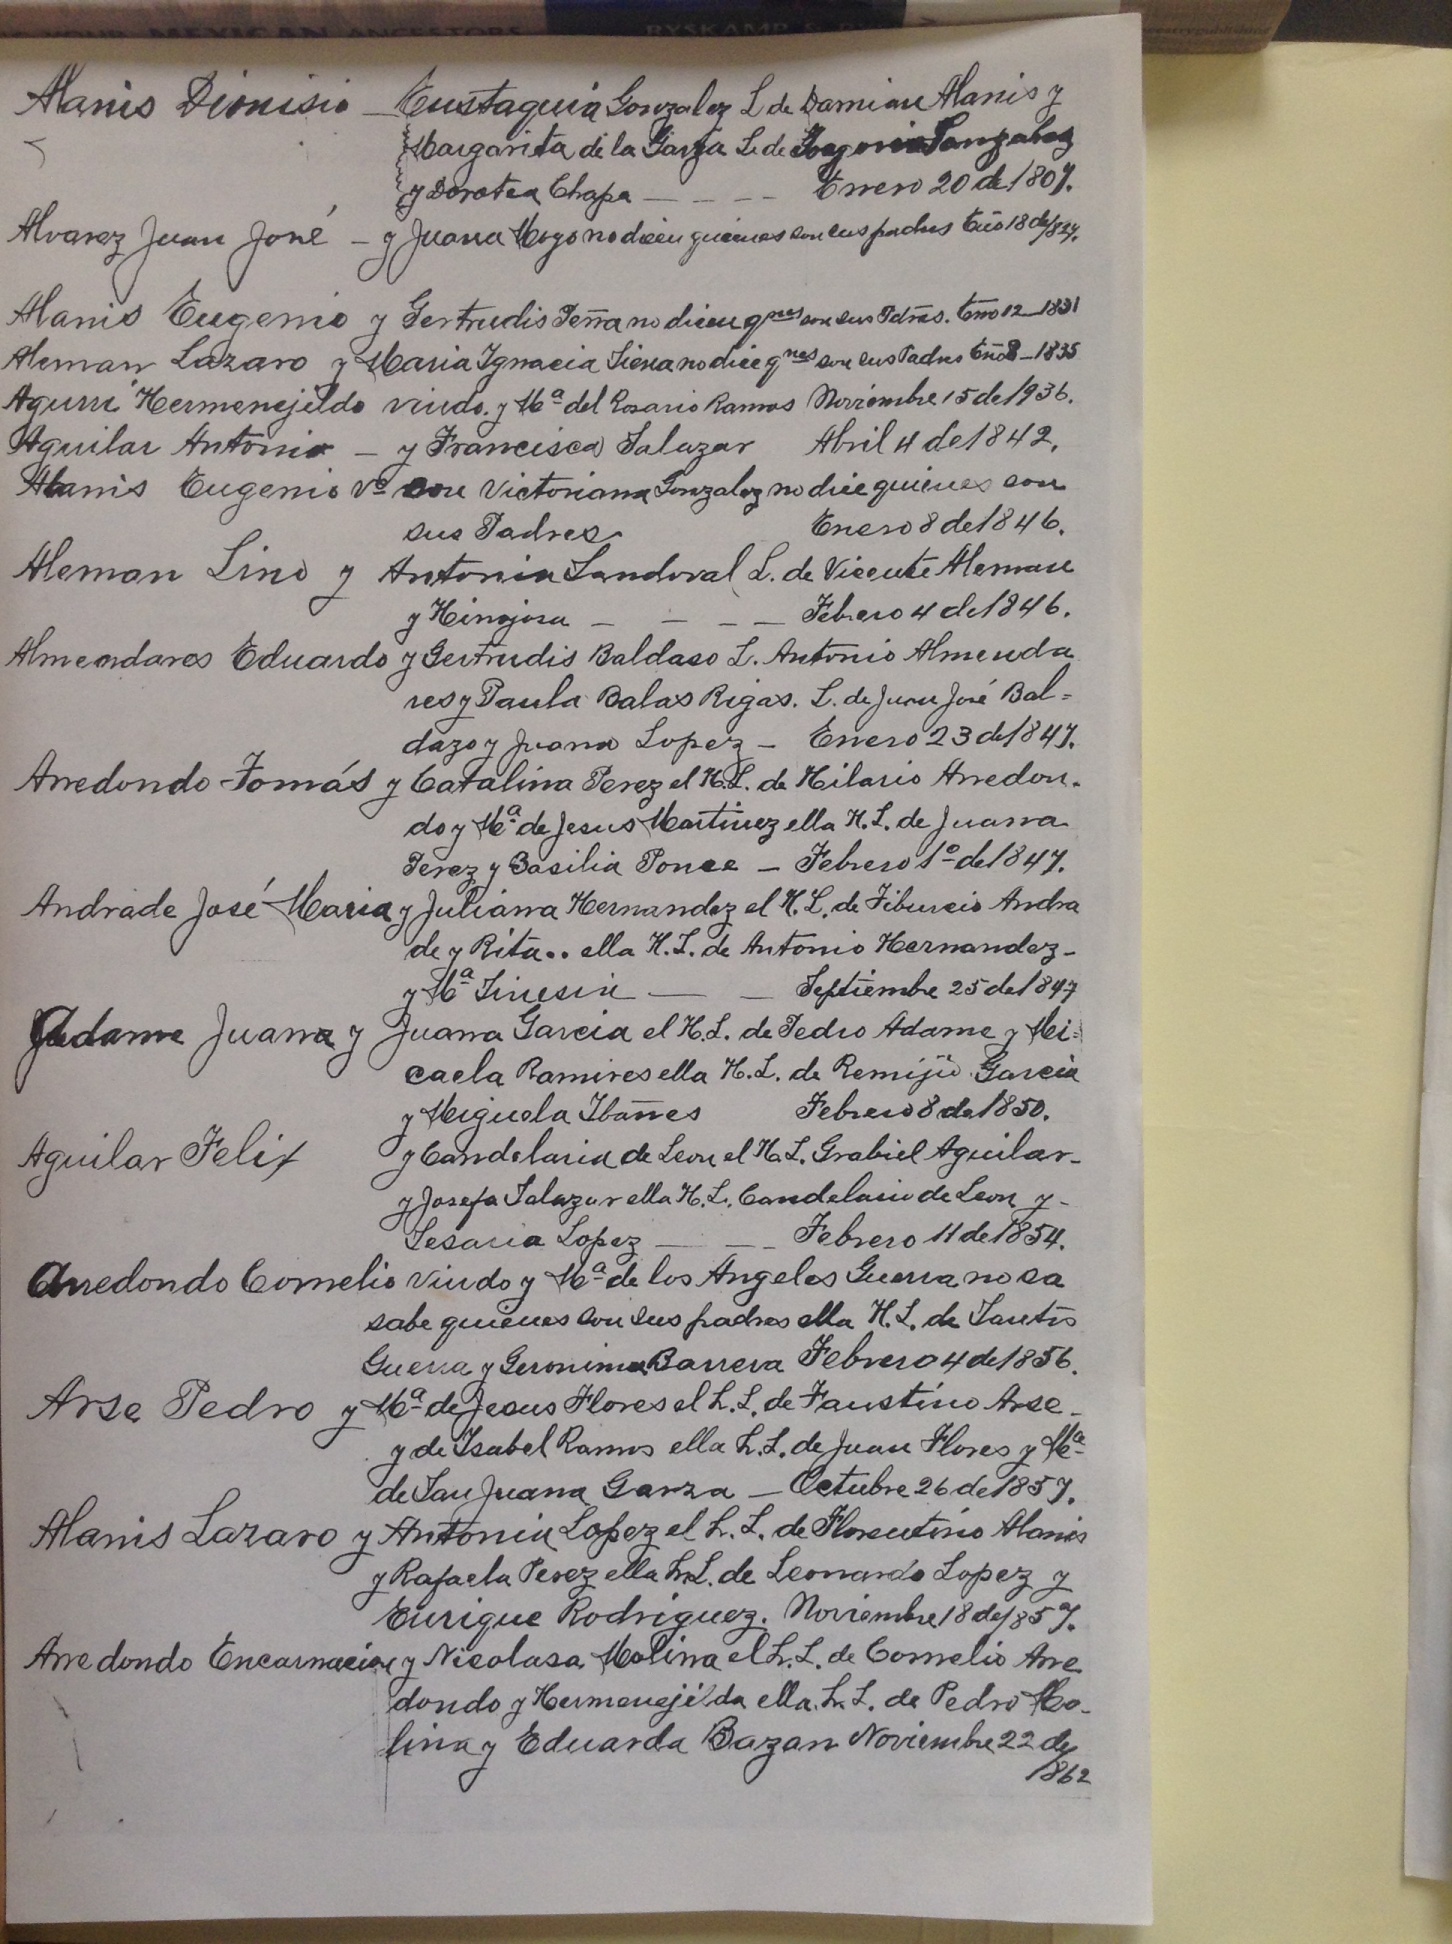 YOUR MEXICAN ANCESTORS RYSKAMP
Alanis Dionisio — Eustaquia Gonzalez L de Damian Alanis y
Margarita de la Garza L. de Gonzalez
y Dorotea Chapa — — — — Enero 20 de 1807.
Alvarez Juan José — y Juana Moyo no dicen quienes son sus padres 18 de
Alanis Eugenio y Gertrudis Peña no dicen qnes son sus Pdrs. Eno 12 — 1831
Aleman Lazaro y Maria Ignacia no dice qnes son sus Padres 8 — 1835
Aguirri Hermenejildo viudo. y Ma del Rosario Ramos Noviembre 15 de 1936.
Aguilar Antonio — y Francisca Salazar Abril 4 de 1842.
Alanis Eugenio Vo con Victoriana Gonzalez no dice quienes son
sus Padres Enero 8 de 1846.
Aleman Lino y Antonia Sandoval L. de Vicente Aleman
y Hinojosa — — — — Febrero 4 de 1846.
Almendares Eduardo y Gertrudis Baldaso L. Antonio Almenda
res y Paula Balas Rigas. L. de Juan José Bal=
dazo y Juana Lopez — Enero 23 de 1847.
Arredondo Tomás y Catalina Perez el H.L. de Hilario Arredon-
do y Ma de Jesus Martinez ella H.L. de Juana
Perez y Basilia Ponce — Febrero 1o de 1847.
Andrade José Maria y Juliana Hernandez el H.L. de Tiburcio Andra
de y Rita.. ella H.L. de Antonio Hernandez —
y Ma Sinesia — — Septiembre 25 de 1847
Adame Juana y Juana Garcia el H.L. de Pedro Adame y Mi=
caela Ramires ella H.L. de Remijio Garcia
y Miguela Ibañes Febrero 8 de 1850.
Aguilar Felix y Candelaria de Leon el H.L. Grabiel Aguilar —
y Josefa Salazar ella H.L. Candelario de Leon y —
Sesaria Lopez — — — Febrero 11 de 1854.
Arredondo Cornelio viudo y Ma de los Angeles Guerra no sa
sabe quienes son sus padres ella H.L. de Santos
Guerra y Geronima Barrera Febrero 4 de 1856.
Arse Pedro y Ma de Jesus Flores el h.L. de Faustino Arse —
y de Isabel Ramos ella h.L. de Juan Flores y Ma
de San Juana Garza — Octubre 26 de 1857.
Alanis Lazaro y Antonia Lopez el h.L. de Florentino Alanis
y Rafaela Perez ella h.L. de Leonardo Lopez y
Enrique Rodriguez. Noviembre 18 de 1857.
Arredondo Encarnacion y Nicolasa Molina el h.L. de Cornelio Arre
dondo y Hermenejilda ella h.L. de Pedro Mo-
lina y Eduarda Bazan Noviembre 22 de
1862